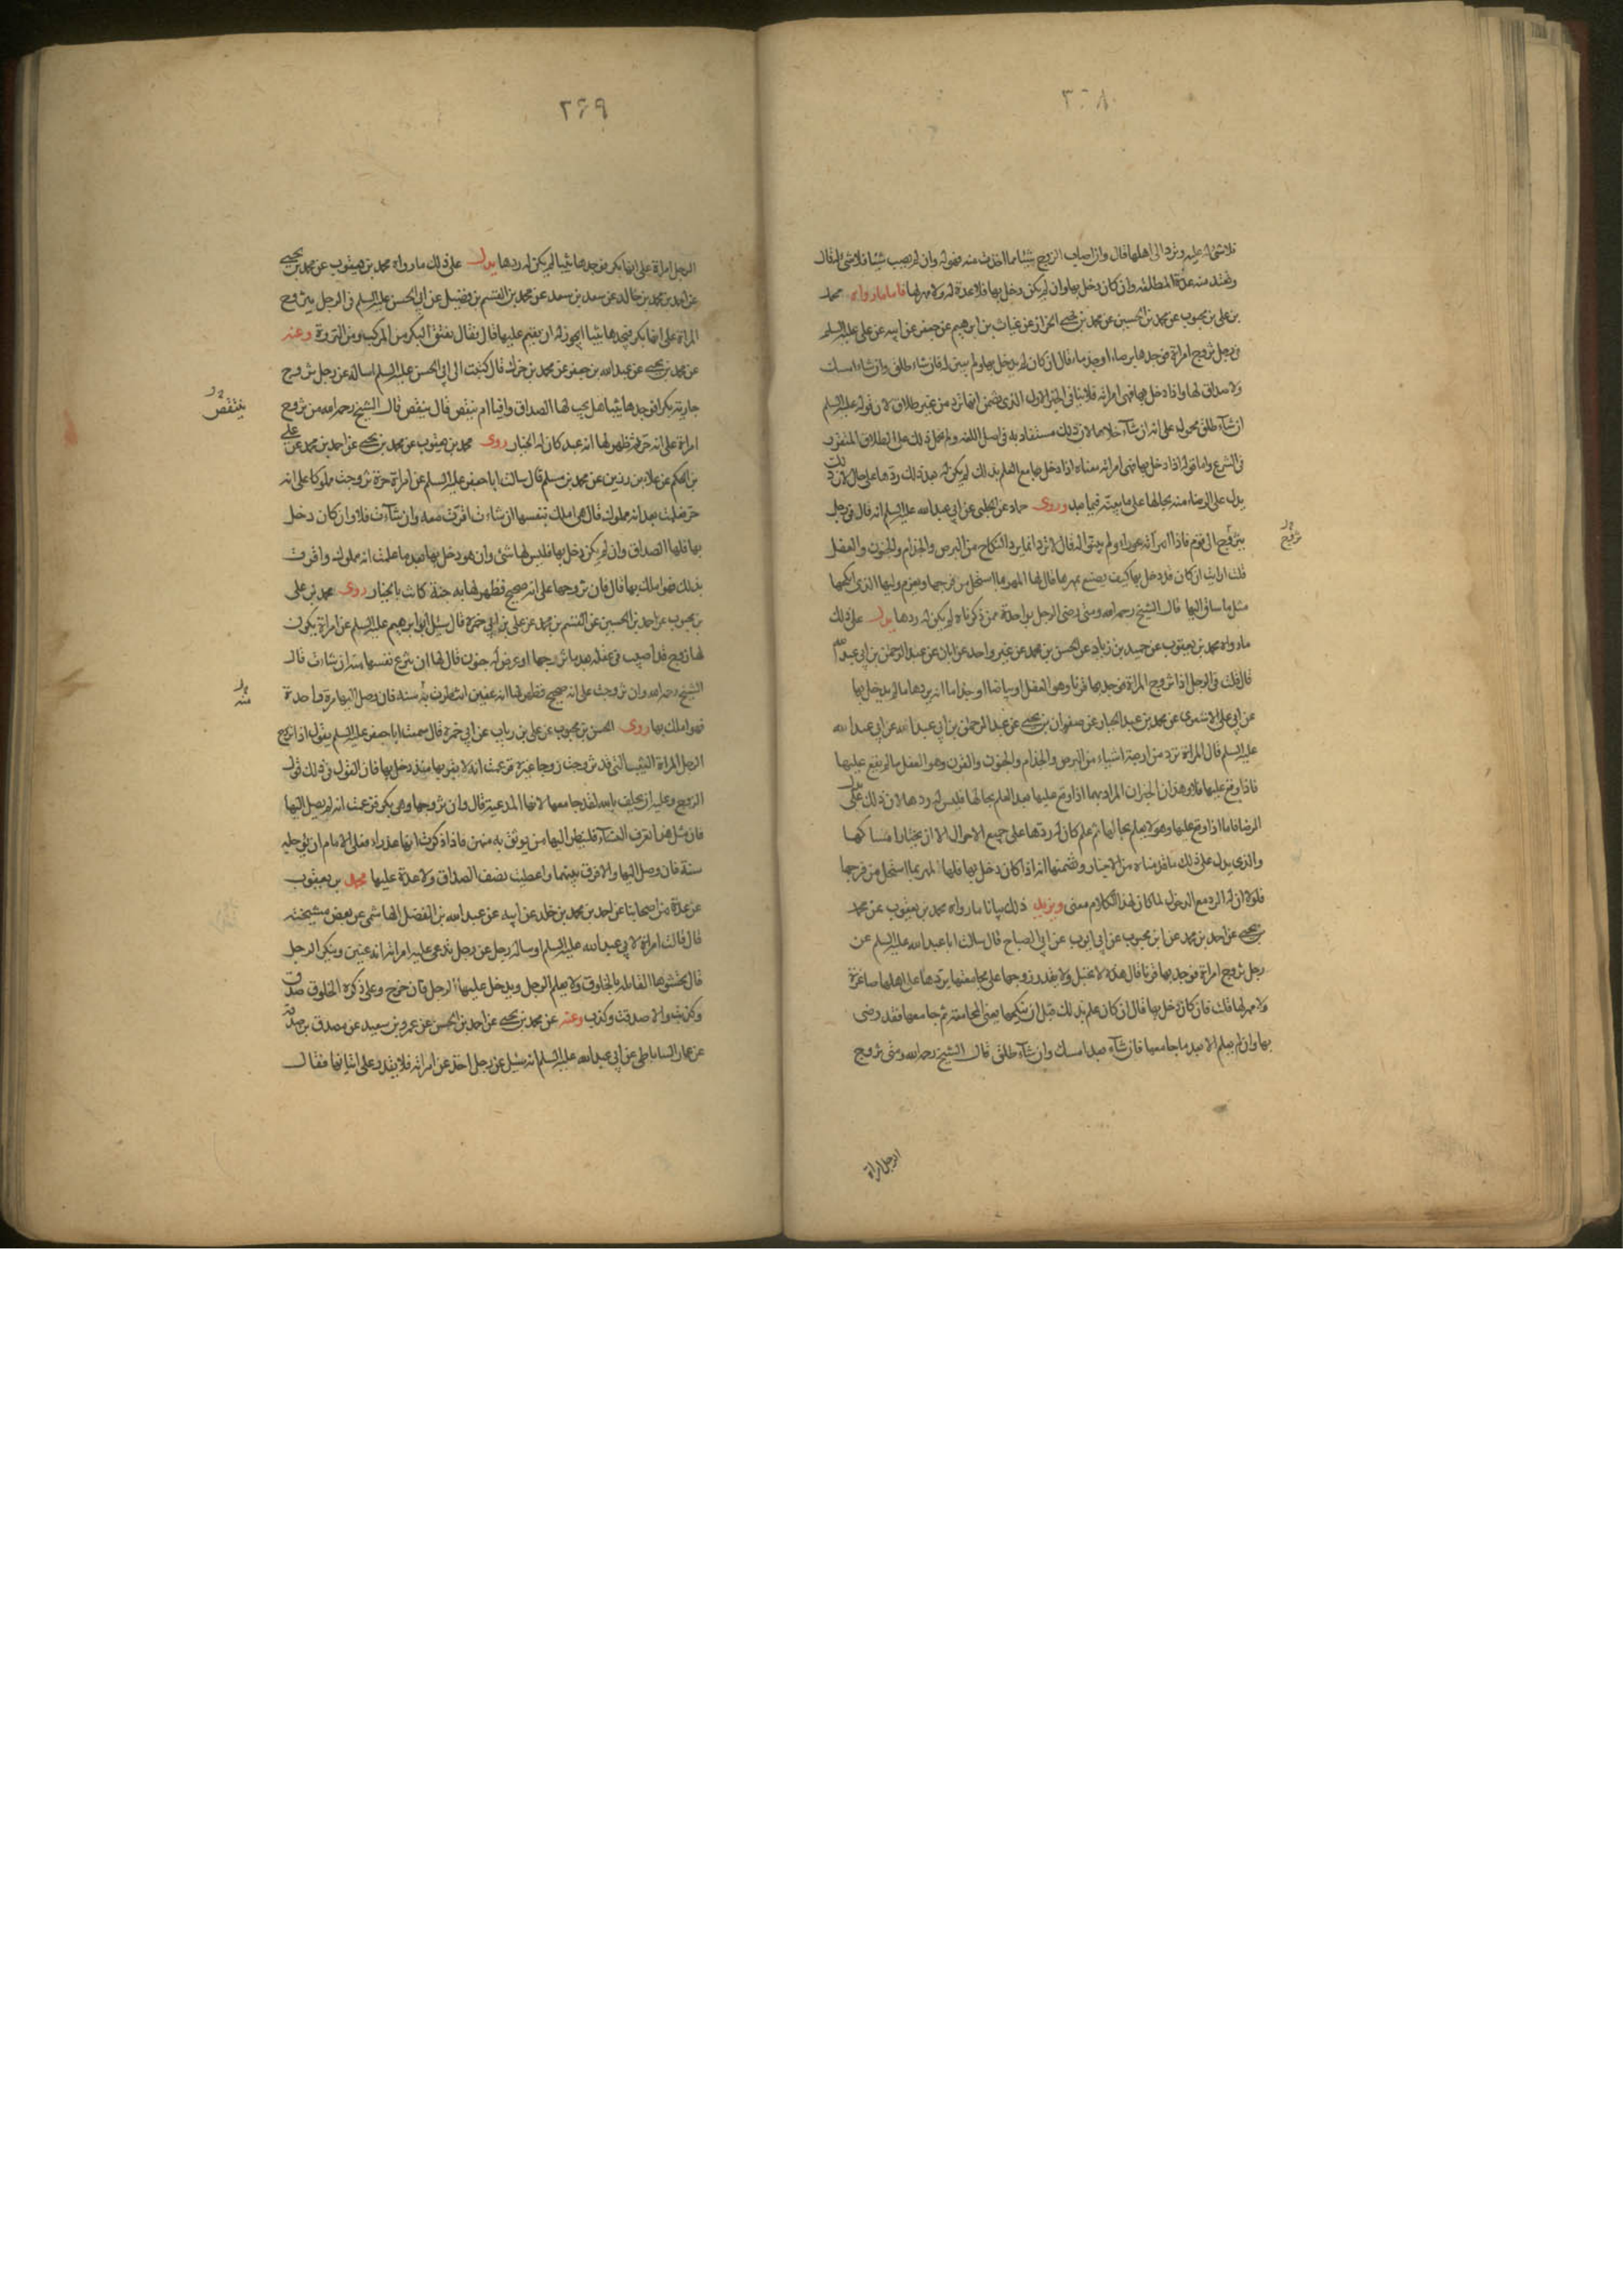 ٢٦٨
فلا شئ له عليه وترد الى اهلها قال وان اصاب الزوج شيئا مما اخذت منه فهو له وان لم يصب شيئا فلا شئ له قال
وتعتد منه عدة المطلقة وان كان دخل بها وان لم يكن دخل بها فلا عدة له ولا مهر لها فاما ما رواه محمد
بن على بن محبوب عن محمد بن الحسين عن محمد بن يحيى الخزاز عن غياث بن ابرهيم عن جعفر عن ابيه عن على عليه السلم
فى رجل تزوج امراة فوجدها برصاء او جذماء قال ان كان لم يدخل بها ولم يبين له فان شاء طلق وان شاء امسك
ولا صداق لها واذا دخل بها فهى امراته فلا ينافى الخبر الاول الذى تضمن انها ترد من غير طلاق لان قوله عليه السلم
ان شآء طلق محمول على انه ان شآء خلاها لان ذلك مستفاد به فى اصل اللغه ولم يحمل ذلك على الطلاق المتعارف
فى الشرع واما قوله اذا دخل بها فهى امراته معناه اذا دخل بها مع العلم بذلك لم يكن له بعد ذلك ردها على حال لان ذلك
يدل على الرضاء منه بحالها على ما نبينه فيما بعد وروى حماد عن الحلبى عن ابى عبد الله عليه السلم انه قال فى رجل
يتزوج الى قوم فاذا امرآته عوراء ولم يبينوا له قال لا ترد انما يرد النكاح من البرص والجذام والجنون والعفل
تزوج
قلت ارايت ان كان قد دخل بها كيف يصنع بمهرها قال لها المهر بما استحل من فرجها ويغرم وليها الذى انكحها
مثل ما ساق اليها قال الشيخ رحمه الله ومتى رضى الرجل بواحدة ممن ذكرناه لم يكن له ردها يدل على ذلك
ما رواه محمد بن يعقوب عن حميد بن زياد عن الحسن بن محمد عن غير واحد عن ابان عن عبد الرحمن بن ابى عبد الله
قال قلت فى الرجل اذا تزوج المراة فوجد بها قرنا وهو العفل او بياضا او جذاما انه يردها ما لم يدخل بها
عن ابى على الاشعرى عن محمد بن عبد الجبار عن صفوان بن يحيى عن عبد الرحمن بن ابى عبد الله عن ابى عبد الله
عليه السلم قال المراة ترد من اربعة اشياء من البرص والجذام والجنون والقرن وهو العفل ما لم يقع عليها
فاذا وقع عليها فلا وهذان الخبران المراد بهما اذا وقع عليها بعد العلم بحالها فليس له ردها لان ذلك يدل على
الرضا فاما اذا وقع عليها وهو لا يعلم بحالها ثم علم كان له ردها على جميع الاحوال الا ان يختار امساكها
والذى يدل على ذلك ما قدمناه من الاخبار وتضمنها انه اذا كان دخل بها فلها المهر بما استحل من فرجها
فلولا ان له الرد مع الدخول لما كان لهذا الكلام معنى ويزيد ذلك بيانا ما رواه محمد بن يعقوب عن محمد
بن يحيى عن احمد بن محمد عن ابن محبوب عن ابى ايوب عن ابى الصباح قال سالت ابا عبد الله عليه السلم عن
رجل تزوج امراة فوجد بها قرنا قال هذه لا تحبل ولا يقدر زوجها على مجامعتها يردها على اهلها صاغرة
ولا مهر لها قلت فان كان دخل بها قال ان كان علم بذلك قبل ان ينكحها يعنى المجامعة ثم جامعها فقد رضى
بها وان لم يعلم الا بعد ما جامعها فان شآء بعد امسك وان شآء طلق قال الشيخ رحمه الله ومتى تزوج
الرجل امراة
٢٦٩
الرجل امراة على انها بكر فوجدها ثيبا لم يكن له ردها يدل على ذلك ما رواه محمد بن يعقوب عن محمد بن يحيى
عن احمد بن محمد بن خالد عن سعد بن سعد عن محمد بن القسم بن فضيل عن ابى الحسن عليه السلم فى الرجل يتزوج
المراة على انها بكر فيجدها ثيبا ايجوز له ان يقيم عليها قال فقال تفتق البكر من المركب ومن النزوة وعنه
عن محمد بن يحيى عن عبد الله بن جعفر عن محمد بن جزك قال كتبت الى ابى الحسن عليه السلم اساله عن رجل تزوج
جارية بكرا فوجدها ثيبا هل يجب لها الصداق وافيا ام ينتقص قال ينتقص قال الشيخ رحمه الله من تزوج
ينتقص
امراة على انه حر فظهر لها انه عبد كان لها الخيار روى محمد بن يعقوب عن محمد بن يحيى عن احمد بن محمد عن على
بن الحكم عن علا بن رزين عن محمد بن مسلم قال سالت ابا جعفر عليه السلم عن امراة حرة تزوجت مملوكا على انه
حر فعلمت بعد انه مملوك قال هى املك بنفسها ان شاءت اقرت معه وان شآءت فلا وان كان دخل
بها فلها الصداق وان لم يكن دخل بها فليس لها شئ وان هو دخل بها بعد ما علمت انه مملوك واقرت
بذلك فهو املك بها قال فان تزوجها على انه صحيح فظهر لها به جنة كانت بالخيار روى محمد بن على
بن محبوب عن احمد بن الحسين عن القسم بن محمد عن على بن ابى حمزة قال سئل ابو ابرهيم عليه السلم عن امراة يكون
لها زوج قد اصيب فى عقله بعد ما تزوجها او عرض له جنون قال لها ان تنزع نفسها منه ان شاءت قال
الشيخ رحمه الله وان تزوجت على انه صحيح فظهر لها انه عنين انتظرت به سنة فان وصل اليها مرة واحدة
منه
فهو املك بها روى الحسن بن محبوب عن على بن رياب عن ابى حمزة قال سمعت ابا جعفر عليه السلم يقول اذا تزوج
الرجل المراة الثيب التى قد تزوجت زوجا غيره فزعمت انه لا يقربها منذ دخل بها فان القول فى ذلك قول
الزوج وعليه ان يحلف بالله لقد جامعها لانها المدعية قال وان تزوجها وهى بكر فزعمت انه لم يصل اليها
فان مثل هذا تعرف النسآء فلينظر اليها من يوثق به منهن فاذا ذكرت انها عذراء فعلى الامام ان يؤجله
سنة فان وصل اليها والا فرق بينهما واعطيت نصف الصداق ولا عدة عليها محمد بن يعقوب
عن عدة من اصحابنا عن احمد بن محمد بن خلد عن ابيه عن عبد الله بن الفضل الهاشمى عن بعض مشيخته
قال قالت امراة لابى عبد الله عليه السلم او ساله رجل عن رجل تدعى عليه امراته انه عنين وينكر الرجل
قال تحشوها القابلة بالخلوق ولا يعلم الرجل ويدخل عليها الرجل فان خرج وعلى ذكره الخلوق صدق
وكذبت والا صدقت وكذب وعنه عن محمد بن يحيى عن احمد بن الحسن عن عمرو بن سعيد عن مصدق بن صدقة
عن عمار الساباطى عن ابى عبد الله عليه السلم انه سئل عن رجل اخذ عن امراته فلا يقدر على اتيانها فقال